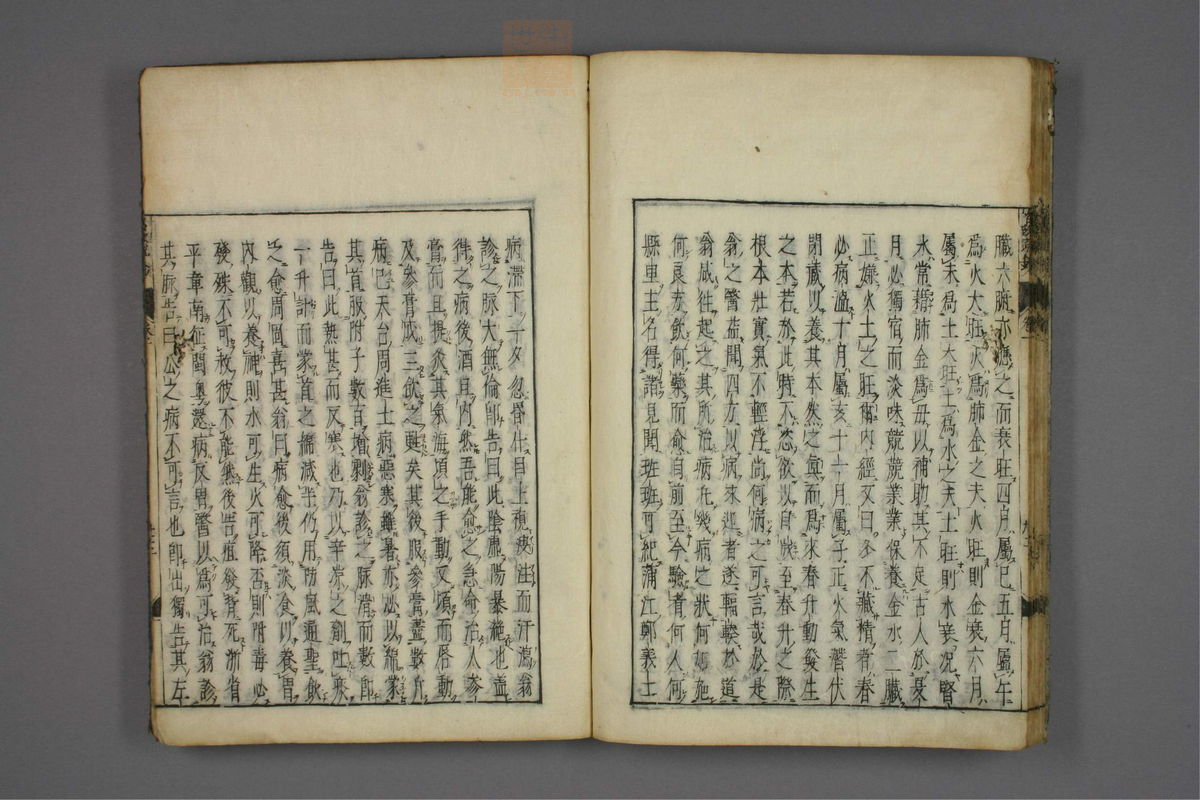 臟六腑亦應之而衰旺四月屬巳五月屬午
爲火大旺火爲肺金之夫火旺則金衰六月
屬未爲土大旺土爲水之夫土旺則水衰況腎
水常藉肺金爲母以補助其不足古人於夏
月必獨宿而淡味兢兢業業保養金水二臟
正嫌火土之旺爾內經又曰冬不藏精者春
必病溫十月屬亥十一月屬子正火氣潛伏
閉藏以養其本然之眞而爲來春升動發生
之本若於此時不恣欲以自戕至春升之際
根本壯實氣不輕浮尚何病之可言哉於是
翁之醫益聞四方以病來迎者遂輻輳於道
翁咸往赴之其所治病凡幾病之狀何如施
何良方飮何藥而愈自前至今驗者何人何
縣里主名得諸見聞班班可紀蒲江鄭義士
病滯下一夕忽昏仆目上視溲注而汗瀉翁
診之脉大無倫卽告曰此陰虛陽暴絶也蓋
得之病後酒且內然吾能愈之急命治人參
膏而且促灸其氣海頃之手動又頃而唇動
及參膏成三飮之甦矣其後服參膏盡數斤
病已天台周進士病惡寒雖暑亦必以綿蒙
其首服附子數百增劇翁診之脉滑而數卽
告曰此熱甚而反寒也乃以辛凉之劑吐痰
一升許而蒙首之綿減半仍用防風通聖飮
之愈周固喜甚翁曰病愈後須淡食以養胃
內觀以養神則水可生火可降否則附毒必
發殊不可救彼不能然後告疽發背死浙省
平章南征閩粤還病反胃醫以爲可治翁診
其脉告曰公之病不可言也卽出獨告其左